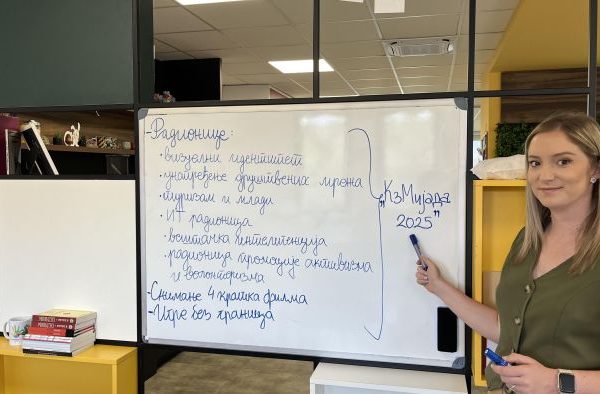 - Радионице:
• визуелни идентитет
• унапређење друштвених мрежа
• туризам и млади
• ИТ радионица
• вештачка интелигенција
• радионица промоције активизма
и волонтаризма
- Снимање 4 кратка филма
- Игре без граница
„КзМијада
2025"